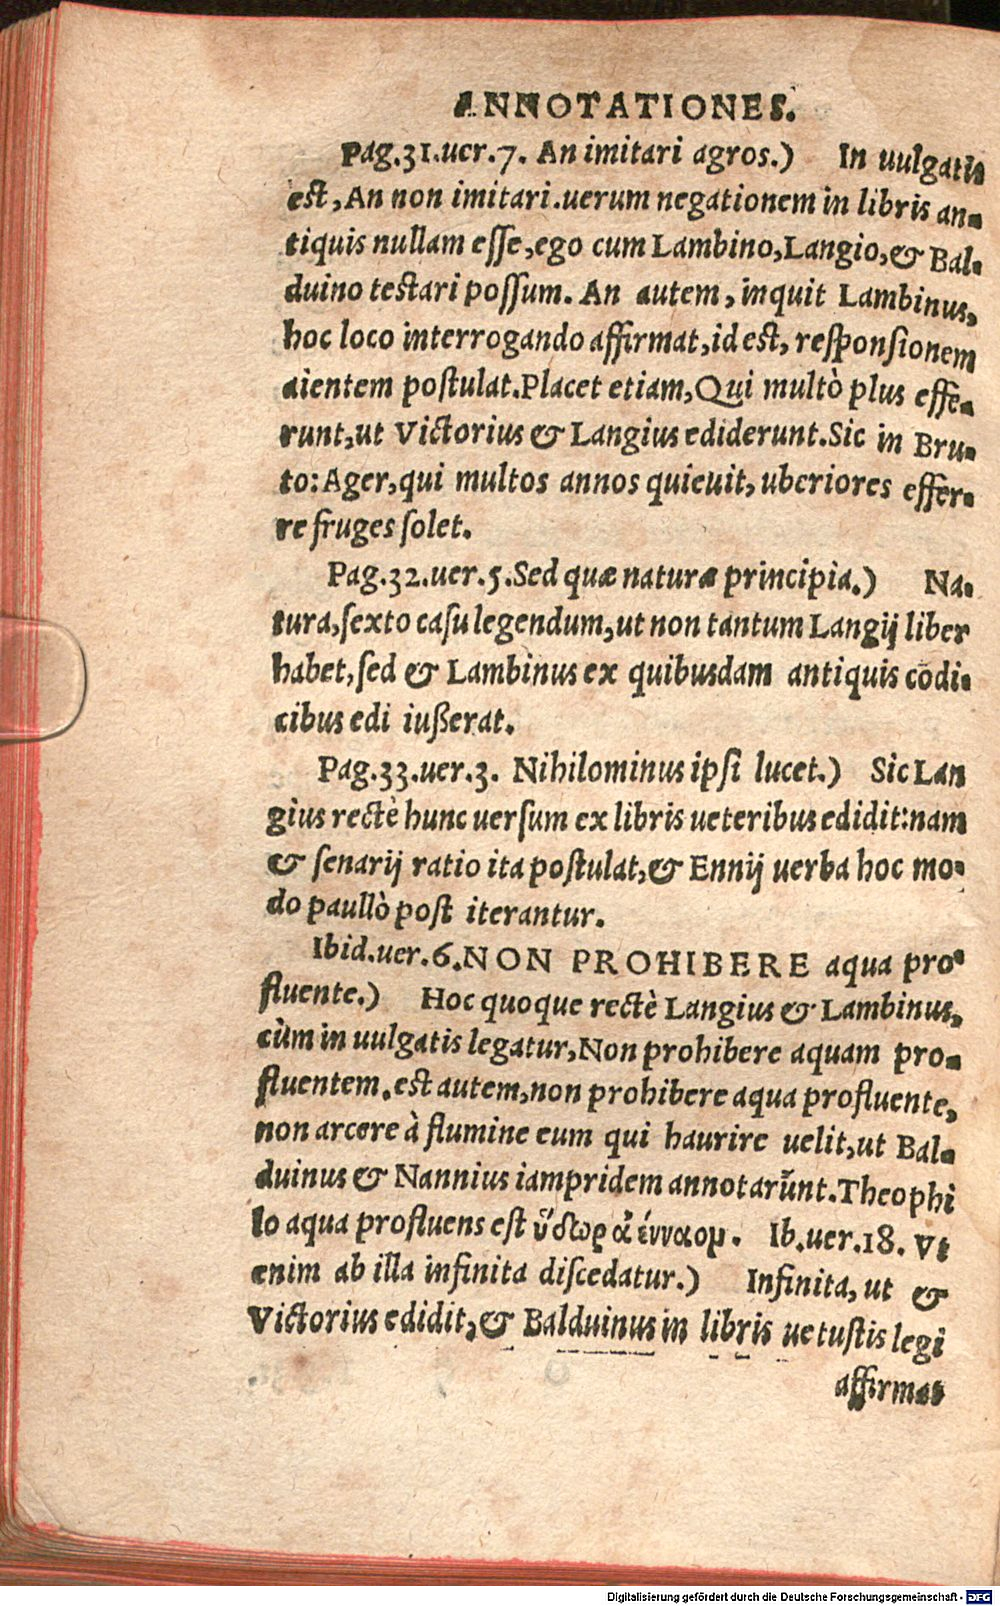 ANNOTATIONES.
Pag.31.uer.7. An imitari agros.) In uulgatis
est, An non imitari.uerum negationem in libris an-
tiquis nullam esse, ego cum Lambino, Langio, & Bal-
duino testari possum. An autem, inquit Lambinus,
hoc loco interrogando affirmat, id est, responsionem
aientem postulat. Placet etiam, Qui multò plus effe-
runt, ut Victorius & Langius ediderunt. Sic in Bru-
to: Ager, qui multos annos quieuit, uberiores effer-
re fruges solet.
Pag.32.uer.5. Sed quæ naturæ principia.) Na-
tura, sexto casu legendum, ut non tantum Langij liber
habet, sed & Lambinus ex quibusdam antiquis codi-
cibus edi iußerat.
Pag.33.uer.3. Nihilominus ipsi lucet.) Sic Lan
gius rectè hunc uersum ex libris ueteribus edidit: nam
& senarij ratio ita postulat, & Ennij uerba hoc mo-
do paullò post iterantur.
Ibid.uer.6. NON PROHIBERE aqua pro-
fluente.) Hoc quoque rectè Langius & Lambinus,
cùm in uulgatis legatur, Non prohibere aquam pro-
fluentem. est autem, non prohibere aqua profluente,
non arcere à flumine eum qui haurire uelit, ut Bal-
duinus & Nannius iampridem annotarũnt. Theophi
lo aqua profluens est ὕδωρ ἀένναομ. Ib.uer.18. Vt
enim ab illa infinita discedatur.) Infinita, ut &
Victorius edidit, & Balduinus in libris uetustis legi
affirmat
Digitalisierung gefördert durch die Deutsche Forschungsgemeinschaft - DFG